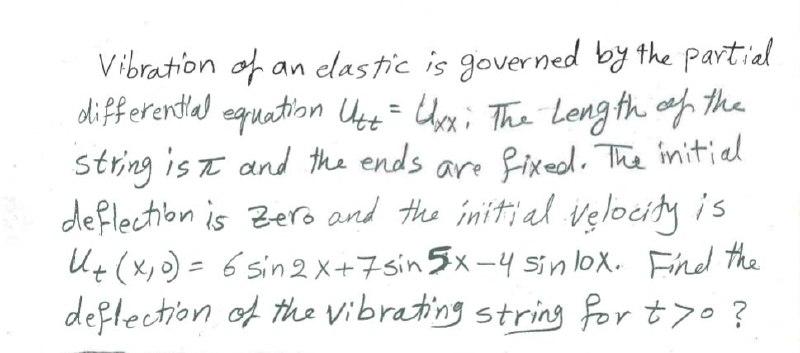 Vibration of an elastic is governed by the partial
differential equation Utt = Uxx; The Length of the
string is π and the ends are fixed. The initial
deflection is zero and the initial velocity is
Ut (x,0) = 6 sin 2x + 7 sin 5x - 4 sin 10x. Find the
deflection of the vibrating string for t > 0 ?